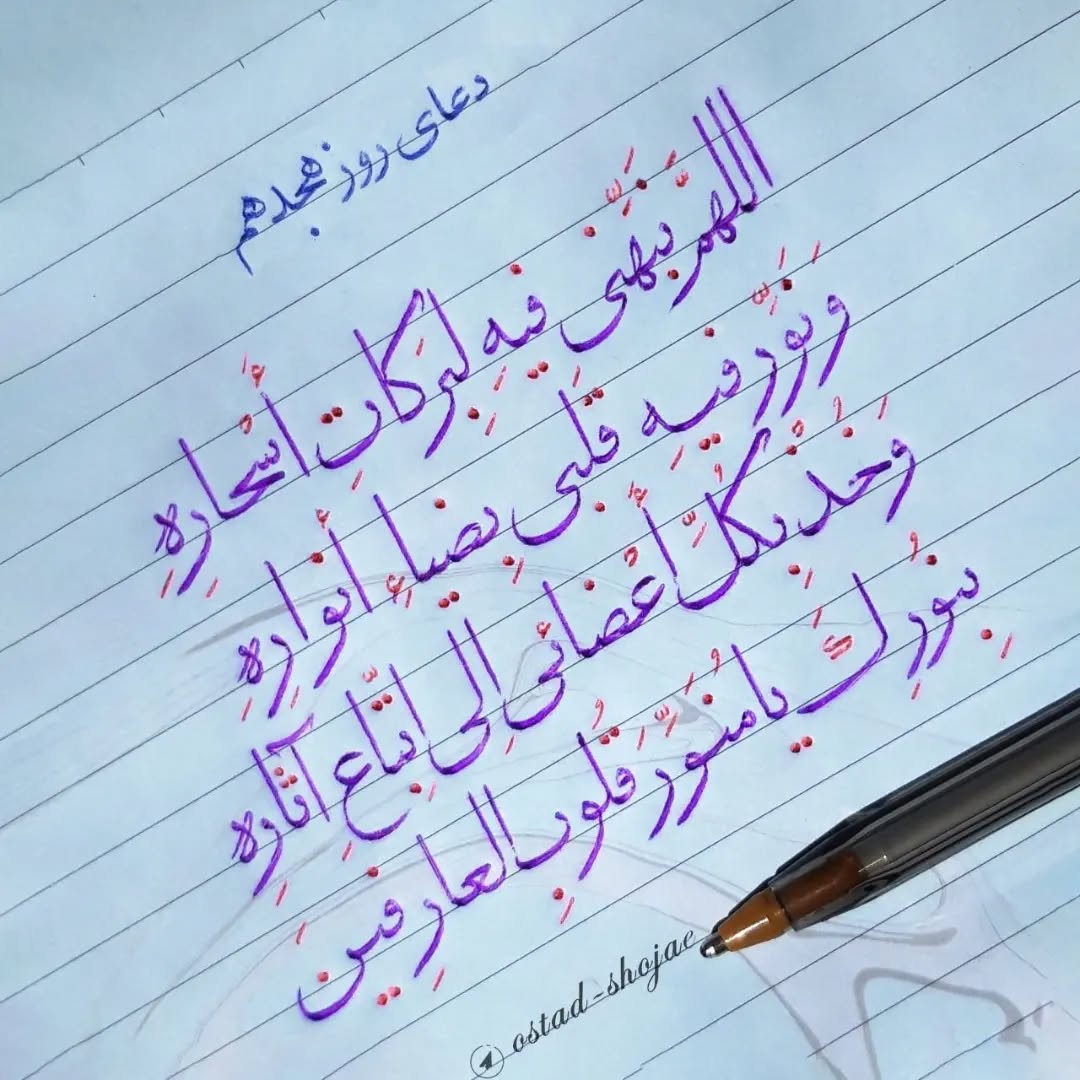 دعای روز هجدهم
اللهمَّ نَبِّهنی فیهِ لِبَرَکاتِ أَسْحارِهِ
وَ نَوِّر فیهِ قَلبی بِضیاءِ أنوارِهِ
وَ خُذْ بِکُلِّ أَعْضائی اِلی اتِّباعِ آثارِهِ
بِنُورِكَ یا مُنَوِّرَ قُلُوبِ العارِفینَ
ostad-shojae